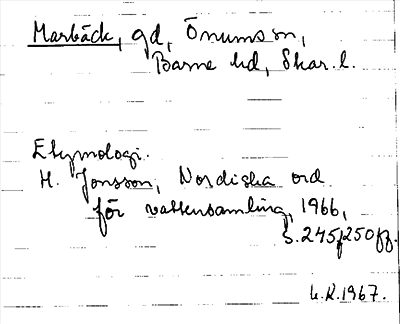 Marbäck, gd, Önums sn,
Barne hd, Skar. l.
Etymologi.
H. Jonsson, Nordiska ord
för vattensamling, 1966,
s. 245, 250 ff.
1967.